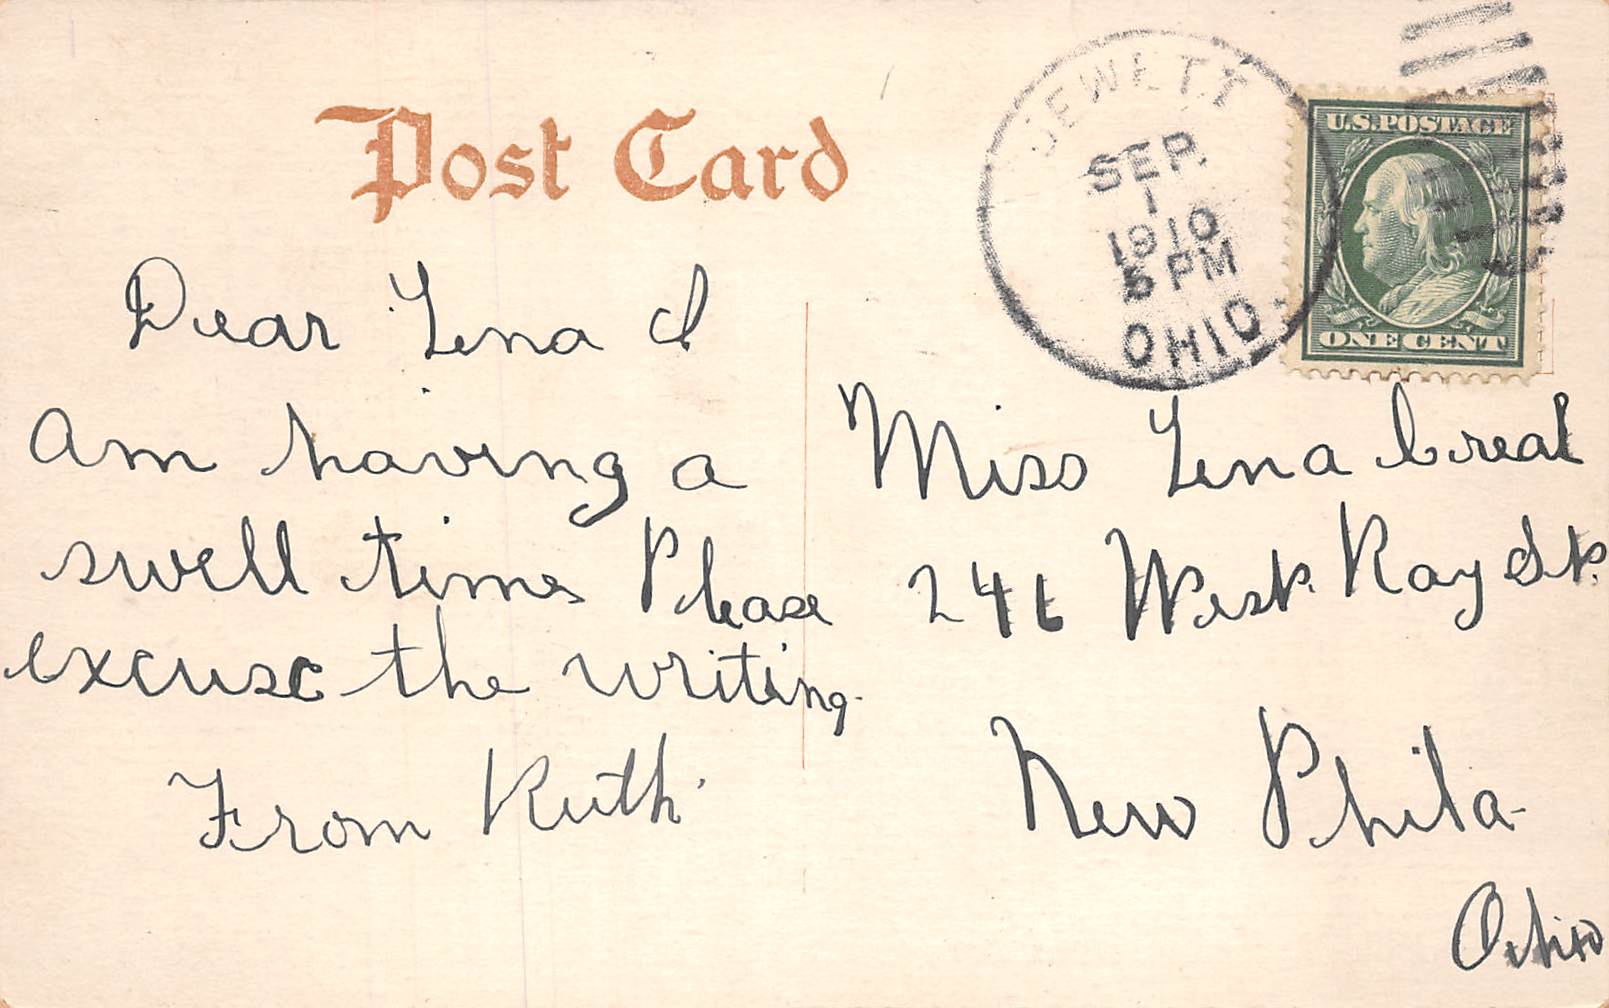 Post Card
JEWETT
SEP
1
1910
5 PM
OHIO
U.S. POSTAGE
ONE CENT
Dear Lena I
am having a
swell time Please
excuse the writing.
From Ruth
Miss Lena Creal
246 West Ray St.
New Phila
Ohio